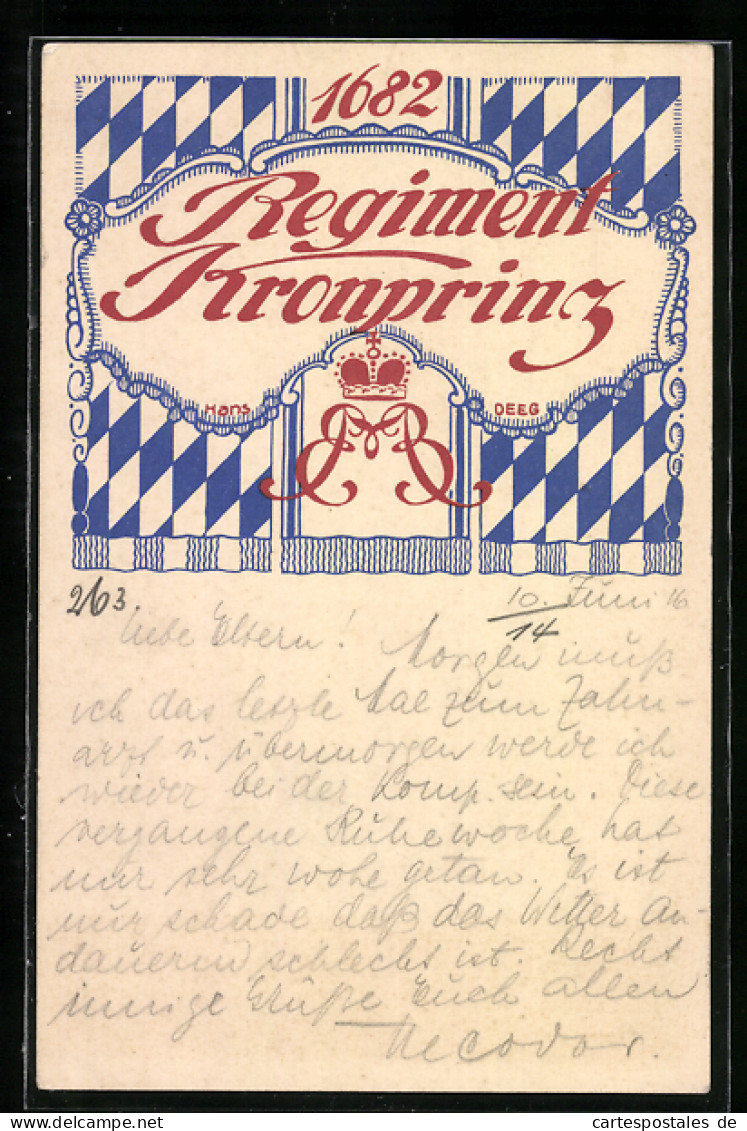 1682
Regiment
Kronprinz
Hans DEEG
263. 10. Juni 16
14
Liebe Eltern! Morgen muß
ich das letzte Mal zum Zahn-
arzt u. übermorgen werde ich
wieder bei der Komp. sein. Diese
vergangene Ruhewoche hat
mir sehr wohl getan. Es ist
nur schade daß das Wetter an-
dauernd schlecht ist. Recht
innige Grüße Euch allen
Theodor.
© cartespostales de
cartespostales.de